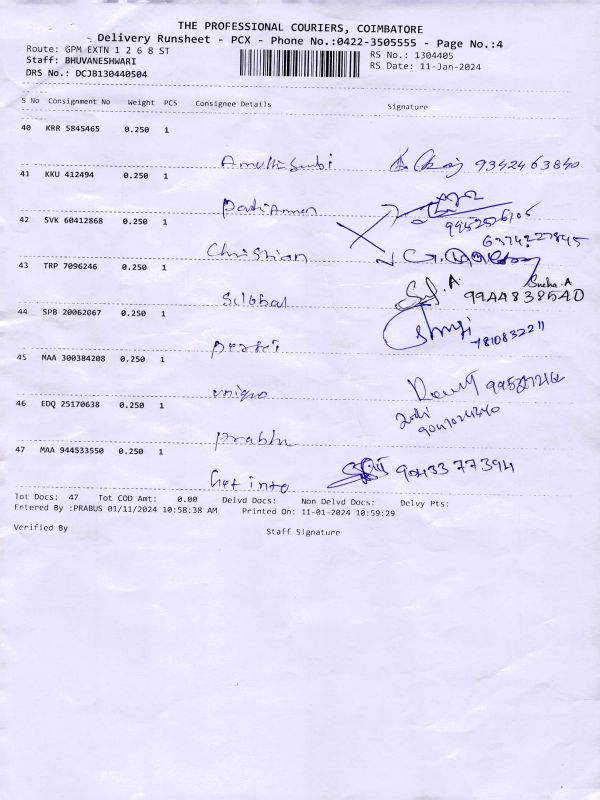 THE PROFESSIONAL COURIERS, COIMBATORE
Delivery Runsheet - PCX - Phone No.:0422-3505555 - Page No.:4
Route: GPM EXTN 1 2 6 8 ST RS No.: 1304405
Staff: BHUVANESHWARI RS Date: 11-Jan-2024
DRS No.: DCJB130440504
S No Consignment No Weight PCS Consignee Details Signature
40 KRR 5845465 0.250 1
9342463840
41 KKU 412494 0.250 1
42 SVK 60412868 0.250 1
6374227845
Christian
43 TRP 7096246 0.250 1
Sneha.A
9944838540
44 SPB 20062067 0.250 1
7810832211
45 MAA 300384208 0.250 1
unique
46 EDQ 25170638 0.250 1
prabhu
47 MAA 944533550 0.250 1
9043377394
Tot Docs: 47 Tot COD Amt: 0.00 Delvd Docs: Non Delvd Docs: Delvy Pts:
Entered By :PRABUS 01/11/2024 10:58:38 AM Printed On: 11-01-2024 10:59:29
Verified By Staff Signature